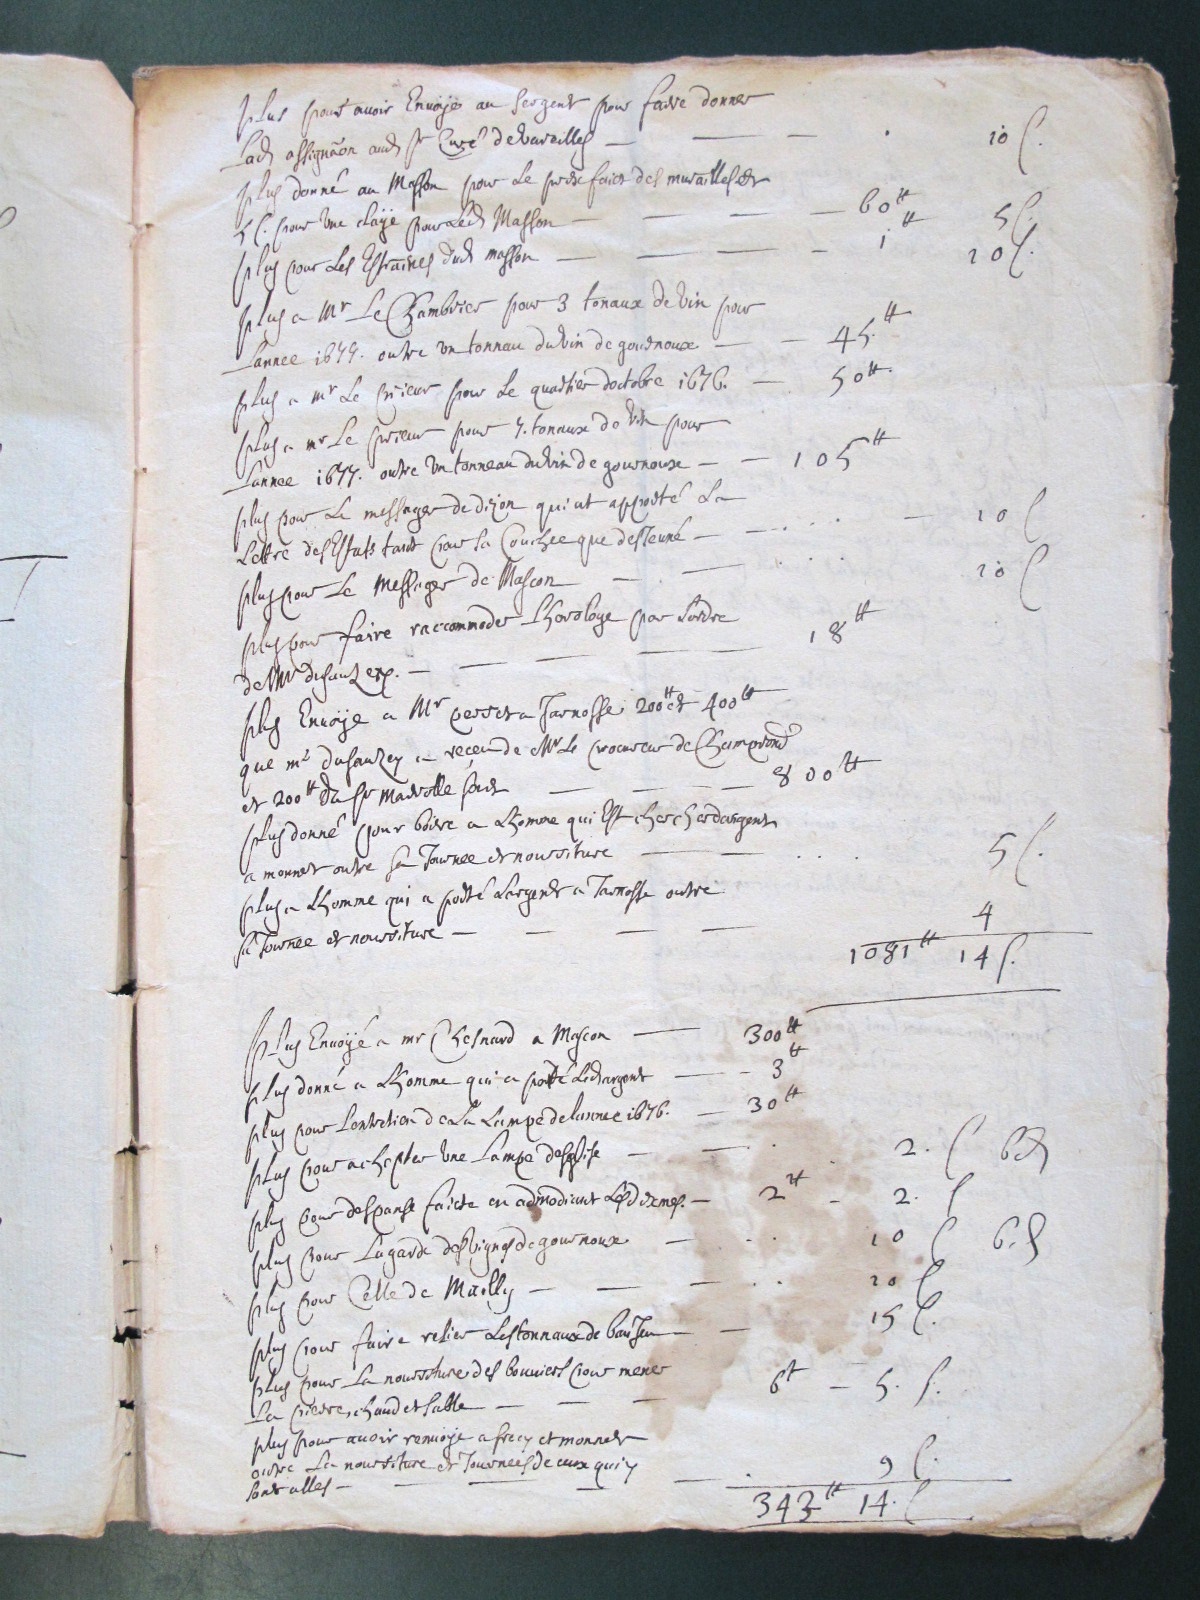 plus pour avoir Envoÿe au sergent pour faire donner
Lad assignaon aud sr Curé de Varailles — 10 s.
plus donné au Masson pour Le prix faict des murailles et
5 s. pour Une claÿe pour Led Masson — 60tt 5 s.
plus pour Les Estraines dud masson — 1tt 10 s.
plus a Mr Le Chambrier pour 3 tonaux de vin pour
Lannee 1677. outre un tonneau du vin de gournoux — 45.tt
plus a mr Le prieur pour Le quartier doctobre 1676. — 50tt.
plus a mr Le prieur pour 7. tonaux de vin pour
Lannee 1677. outre Un tonneau du vin de gournoux — 105tt
plus pour Le messager de dijon qui at apporté La
Lettre des Estats tant pour sa Couchee que desieuné — 10 s
plus pour Le Messager de Mascon — 10 s
plus pour faire raccommoder Lhorologe par Lordre
de Mr — 18tt
plus Envoÿe a Mr a Jarnosse 200tt et 400tt
que mr a receu de Mr Le procureur de Champrond
et 200tt Du sr — 800tt
plus donné pour boire a Lhomme qui Est chercher dargent
a monnet outre sa Journee et nourriture — 5 s.
plus a Lhomme qui a porté Largent a Jarnosse outre
sa Journee et nourriture — 4
1081tt 14 s.
Plus Envoÿé a mr Chesnard a Mascon — 300tt
plus donné a Lhomme qui a porté Led argent — 3tt
plus pour Lentretien de La Lampe de lannee 1676. — 30tt
plus pour achepter Une Lampe desglise — 2. s 6 d
plus pour despanse faicte en admodiant Les dixmes. — 2tt — 2. s
plus pour La garde des Vignes de gournoux — 10 s 6. d
plus pour Celle de Mailly — 10 s
plus pour faire relier Les tonnaux de — 15 s.
plus pour La nourriture des bouviers pour mener
La pierre, chaud et sable — 6tt — 5. s.
plus pour avoir renvoye a et monnet
outre La nourriture et Journees de ceux qui y
sont alles — 9 s.
343tt 14. s